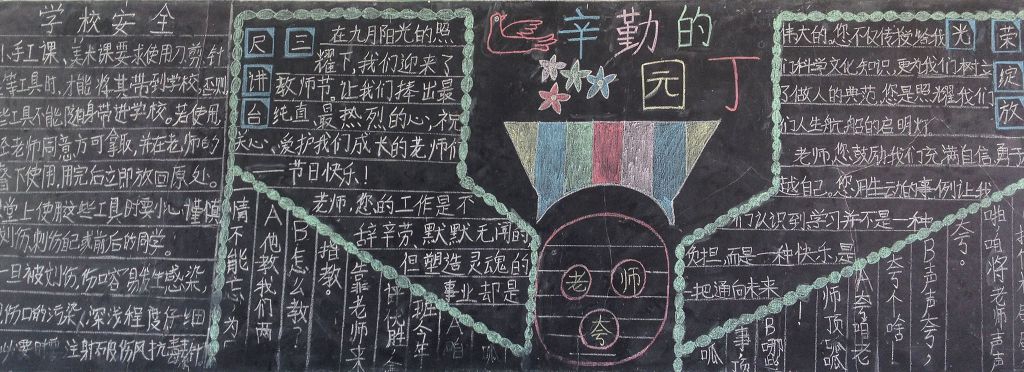 学校安全
手工课、美术课要求使用刀剪、针
等工具时,才能将其带到学校,否则
工具不能随身带进学校。若使用,
老师同意方可拿取,并在老师的
下使用,用完后立即放回原处。
堂上使用这些工具时要小心谨慎
划伤,刺伤自己或前后的同学!
一旦被划伤,伤口容易发生感染,
伤口的污染、深浅程度仔细
注射不破伤风抗毒素针
三尺讲台
在九月阳光的照
耀下,我们迎来了
教师节,让我们捧出最
纯真、最热烈的心,祝
关心、爱护我们成长的老师们
节日快乐!
老师,您的工作是不
辞辛劳、默默无闻的
但塑造灵魂的
事业却是
情不能忘,为
A他教我们两
B怎么教?
指教?
靠老师来
辛勤的
园丁
老师
夸
光荣绽放
伟大的。您不仅传授给我
们科学文化知识,更为我们树立
了做人的典范,您是照耀我们
们人生航船的启明灯
老师,您鼓励我们充满自信,勇于
越自己。您用生动的事例让我
们认识到学习并不是一种
负担,而是一种快乐,是
把通向未来
咱将老师声
夸。
B声声夸,
夸个不啥!
A夸咱老
师顶呱
呱
B哪
事项